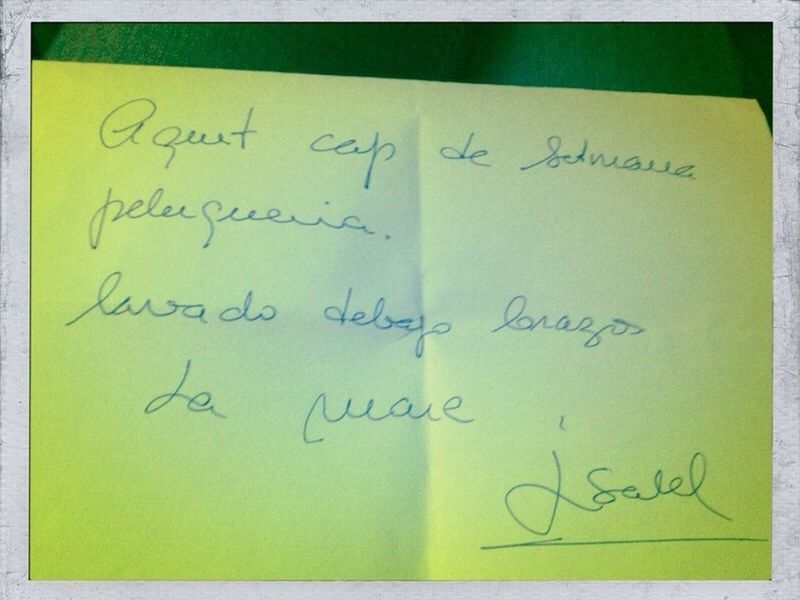 Aquet cap de setmana
peluqueria.
lavado debajo brazos
La mare
Isabel